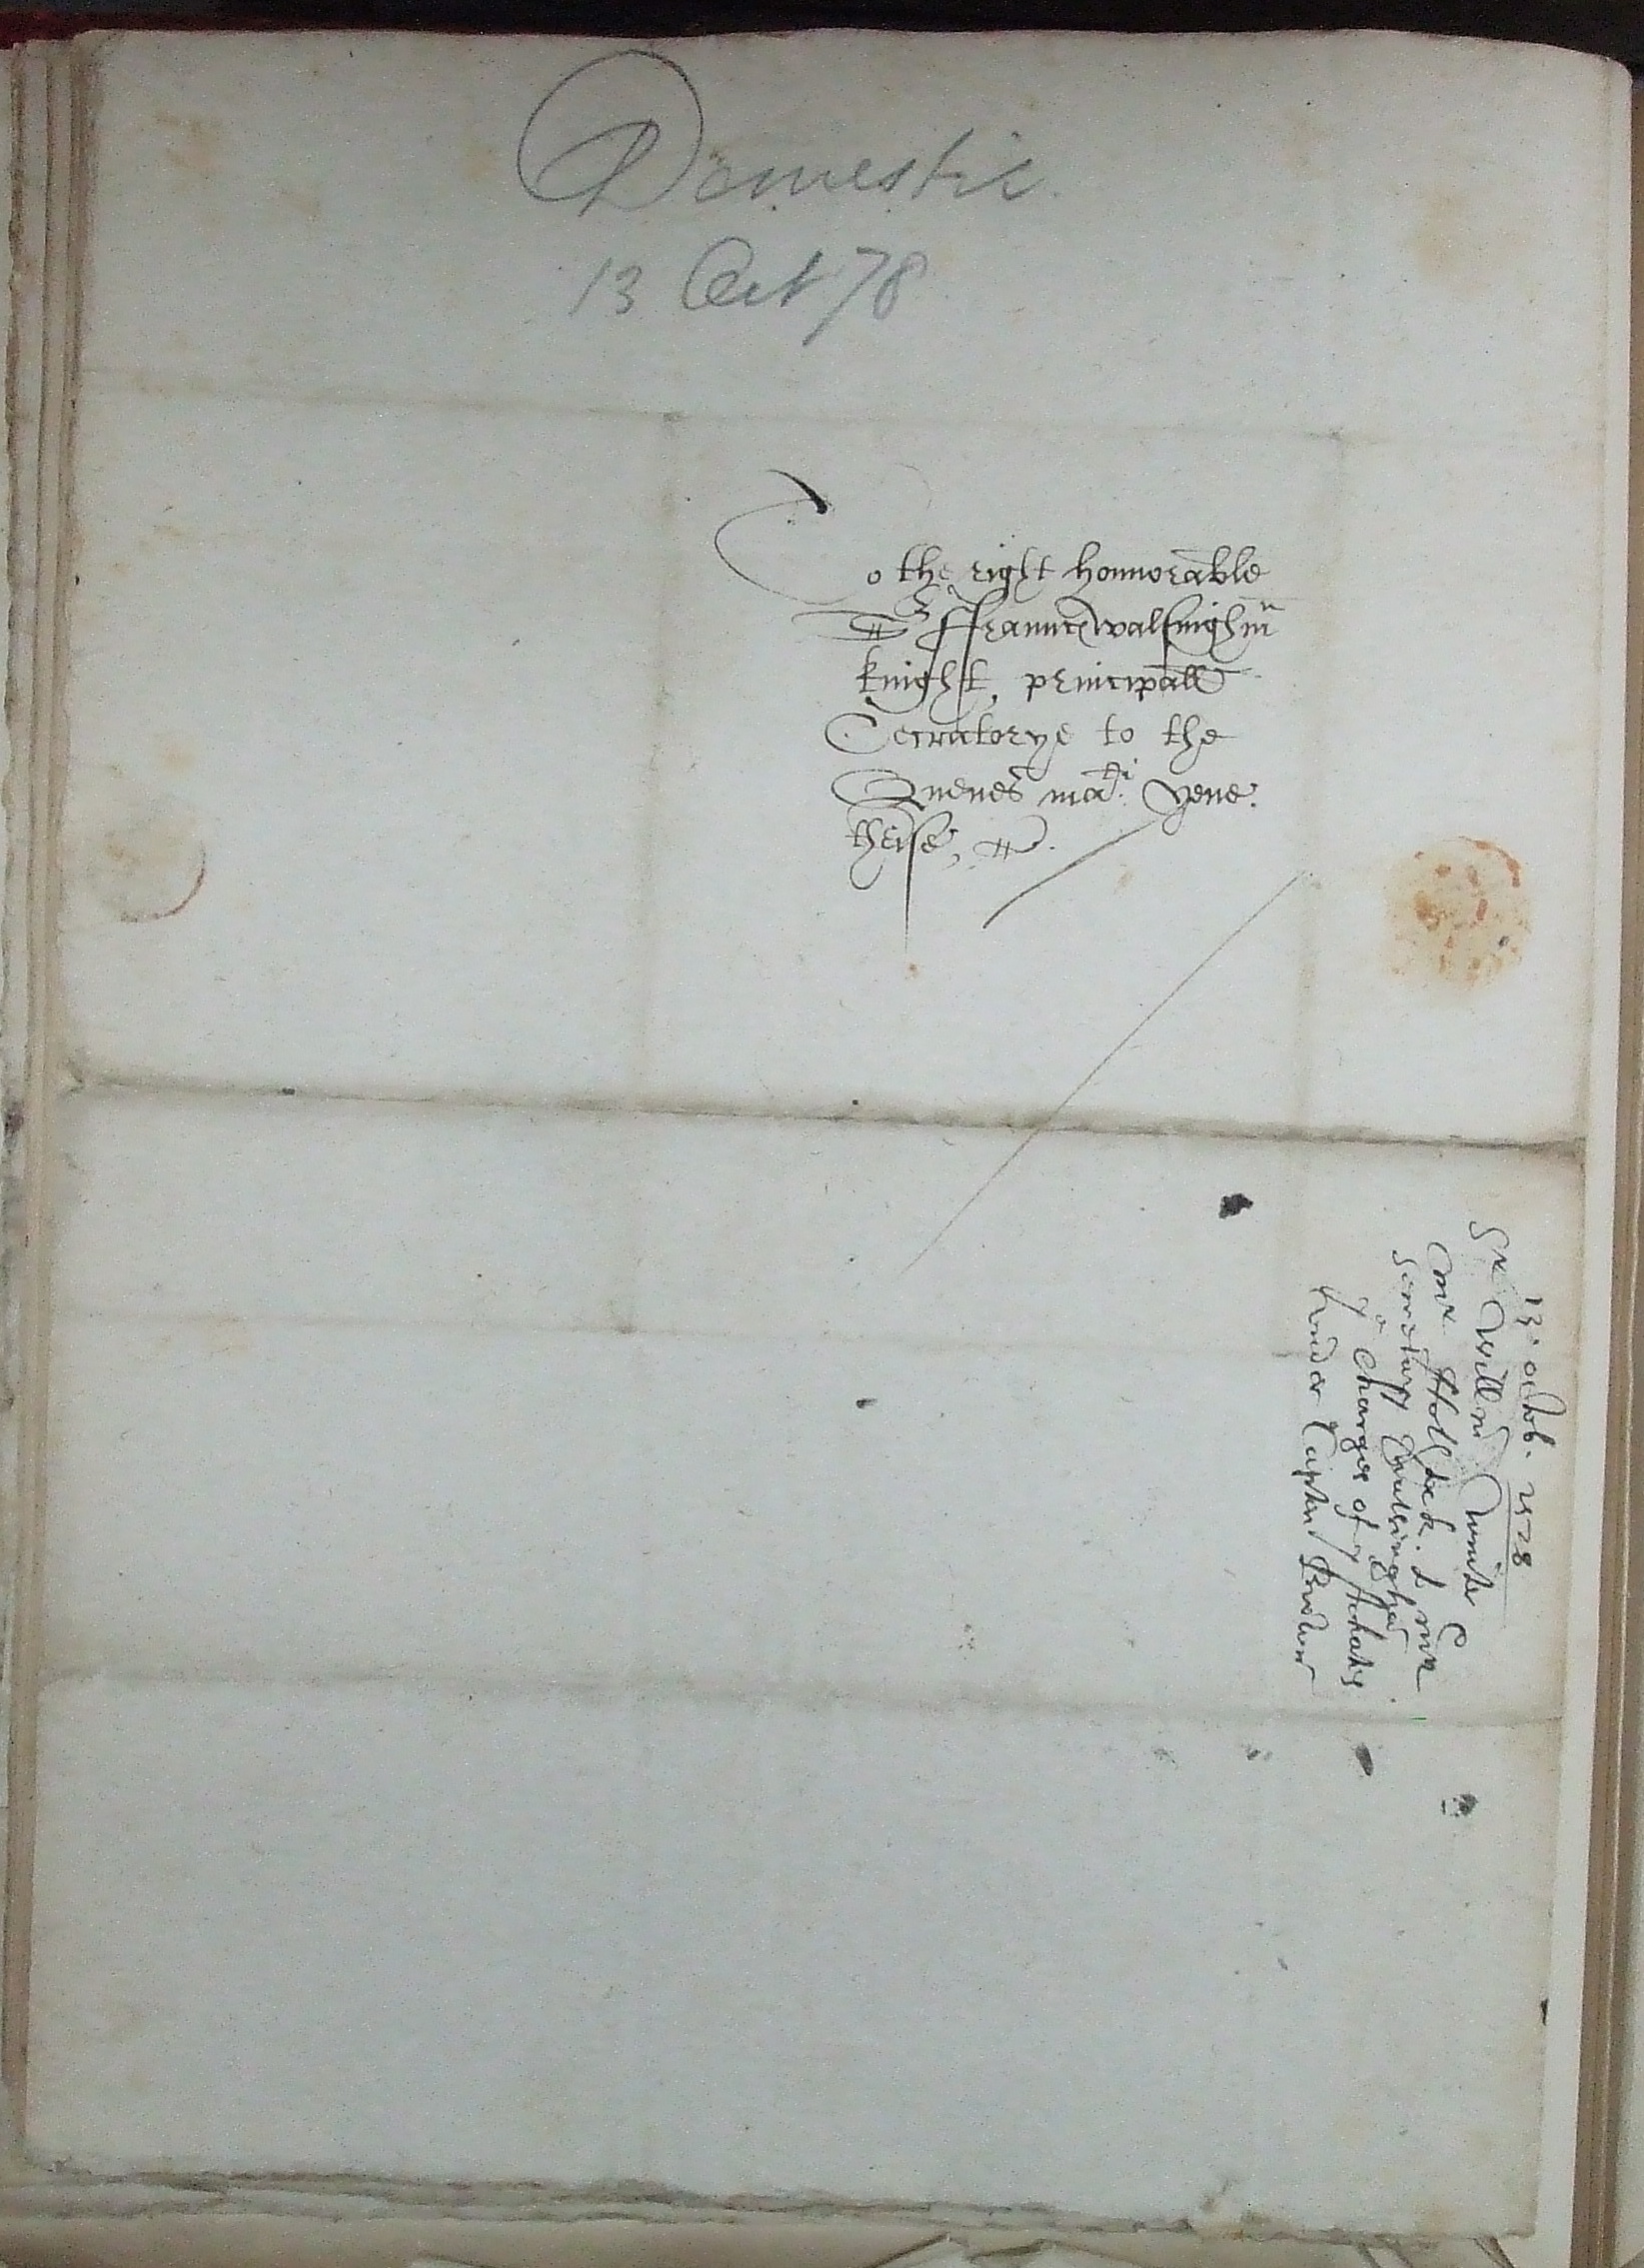 Domestic
13 Oct 78
To the right honnorable
Sr ffraunc walsingham
knight, principall
Secratorye to the
Quenes matie geve
theise,
13. octob. 1578
Sr Willm winter
mr Holstock. to mr
Secretary Walsingham
ye charges of ye
under Captin